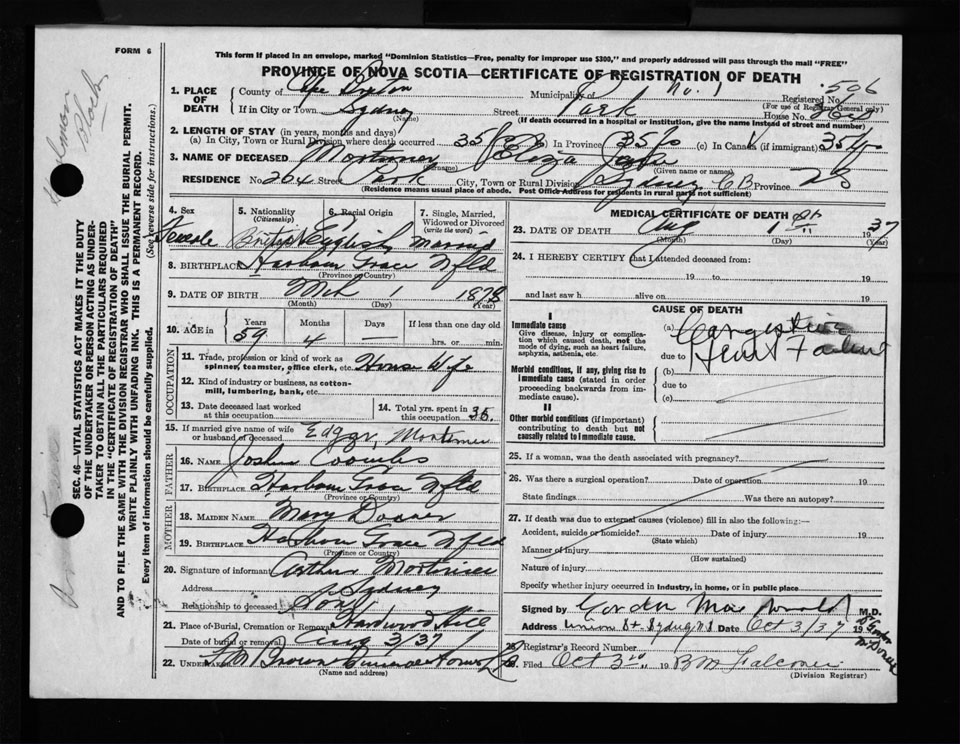 FORM 6
This form if placed in an envelope, marked "Dominion Statistics—Free, penalty for improper use $300," and properly addressed will pass through the mail "FREE"
PROVINCE OF NOVA SCOTIA—CERTIFICATE OF REGISTRATION OF DEATH
1. PLACE OF DEATH
County of Cape Breton Municipality of No. 1 Registered No. 506
(For use of Registrar General only)
If in City or Town Sydney Street Park House No. 264
(Name) (If death occurred in a hospital or institution, give the name instead of street and number)
2. LENGTH OF STAY (in years, months and days)
(a) In City, Town or Rural Division where death occurred 35 In Province 35 (c) In Canada (if immigrant) 35
3. NAME OF DECEASED Mortimer Eliza
(Surname) (Given name or names)
RESIDENCE No. 264 Street Park City, Town or Rural Division Sydney C B Province N S
(Residence means usual place of abode. Post Office Address for residents in rural parts not sufficient)
4. Sex Female
5. Nationality (Citizenship) British
6. Racial Origin English
7. Single, Married, Widowed or Divorced (write the word) Married
8. BIRTHPLACE Harbour Grace Nfld
(Province or Country)
9. DATE OF BIRTH Mch 1 1878
(Month) (Day) (Year)
10. AGE in Years Months Days If less than one day old
59 4 — hrs. or min.
OCCUPATION
11. Trade, profession or kind of work as spinner, teamster, office clerk, etc. House Wife
12. Kind of industry or business, as cotton-mill, lumbering, bank, etc.
13. Date deceased last worked at this occupation
14. Total yrs. spent in this occupation 35
15. If married give name of wife or husband of deceased Edgar Mortimer
FATHER
16. NAME Joshua Coombs
17. BIRTHPLACE Harbour Grace Nfld
(Province or Country)
MOTHER
18. MAIDEN NAME Mary
19. BIRTHPLACE Harbour Grace Nfld
(Province or Country)
20. Signature of informant Arthur Mortimer
Address Sydney
Relationship to deceased Son
21. Place of Burial, Cremation or Removal Hardwood Hill
Date of burial or removal Aug 3/37
22. UNDERTAKER Brown Funeral Home
(Name and address)
MEDICAL CERTIFICATE OF DEATH
23. DATE OF DEATH Aug 1st 1937
(Month) (Day) (Year)
24. I HEREBY CERTIFY that I attended deceased from:
19 to 19
and last saw h alive on 19
CAUSE OF DEATH
I
Immediate cause
Give disease, injury or complication which caused death, not the mode of dying, such as heart failure, asphyxia, asthenia, etc.
(a) Congestive
due to Heart Failure
Morbid conditions, if any, giving rise to immediate cause (stated in order proceeding backwards from immediate cause).
(b)
due to
(c)
II
Other morbid conditions (if important) contributing to death but not causally related to immediate cause.
25. If a woman, was the death associated with pregnancy?
26. Was there a surgical operation? Date of operation 19
State findings Was there an autopsy?
27. If death was due to external causes (violence) fill in also the following:—
Accident, suicide or homicide? Date of injury 19
(State which)
Manner of injury
(How sustained)
Nature of injury
Specify whether injury occurred in industry, in home, or in public place
Signed by Gordon MacDonald M.D.
Address Union St Sydney N S Date Oct 3/37 19
28. Registrar's Record Number
29. Filed Oct 3rd 19 B M Falconer
(Division Registrar)
SEC. 46—VITAL STATISTICS ACT MAKES IT THE DUTY
OF THE UNDERTAKER OR PERSON ACTING AS UNDER-
TAKER TO OBTAIN ALL THE PARTICULARS REQUIRED
IN THE "CERTIFICATE OF REGISTRATION OF DEATH"
AND TO FILE THE SAME WITH THE DIVISION REGISTRAR WHO SHALL ISSUE THE BURIAL PERMIT.
WRITE PLAINLY WITH UNFADING INK. THIS IS A PERMANENT RECORD.
Every item of information should be carefully supplied. (See reverse side for instructions.)